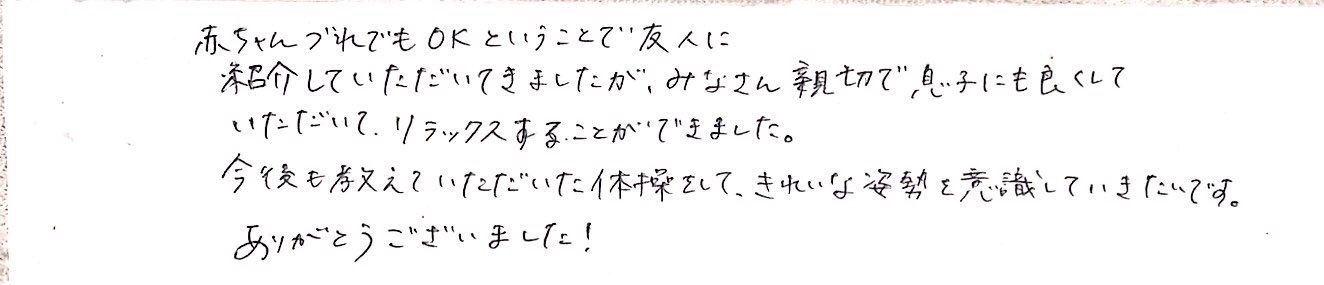 赤ちゃんづれでもOKということで友人に
紹介していただいてきましたが、みなさん親切で、息子にも良くして
いただいて、リラックスすることができました。
今後も教えていただいた体操をして、きれいな姿勢を意識していきたいです。
ありがとうございました!